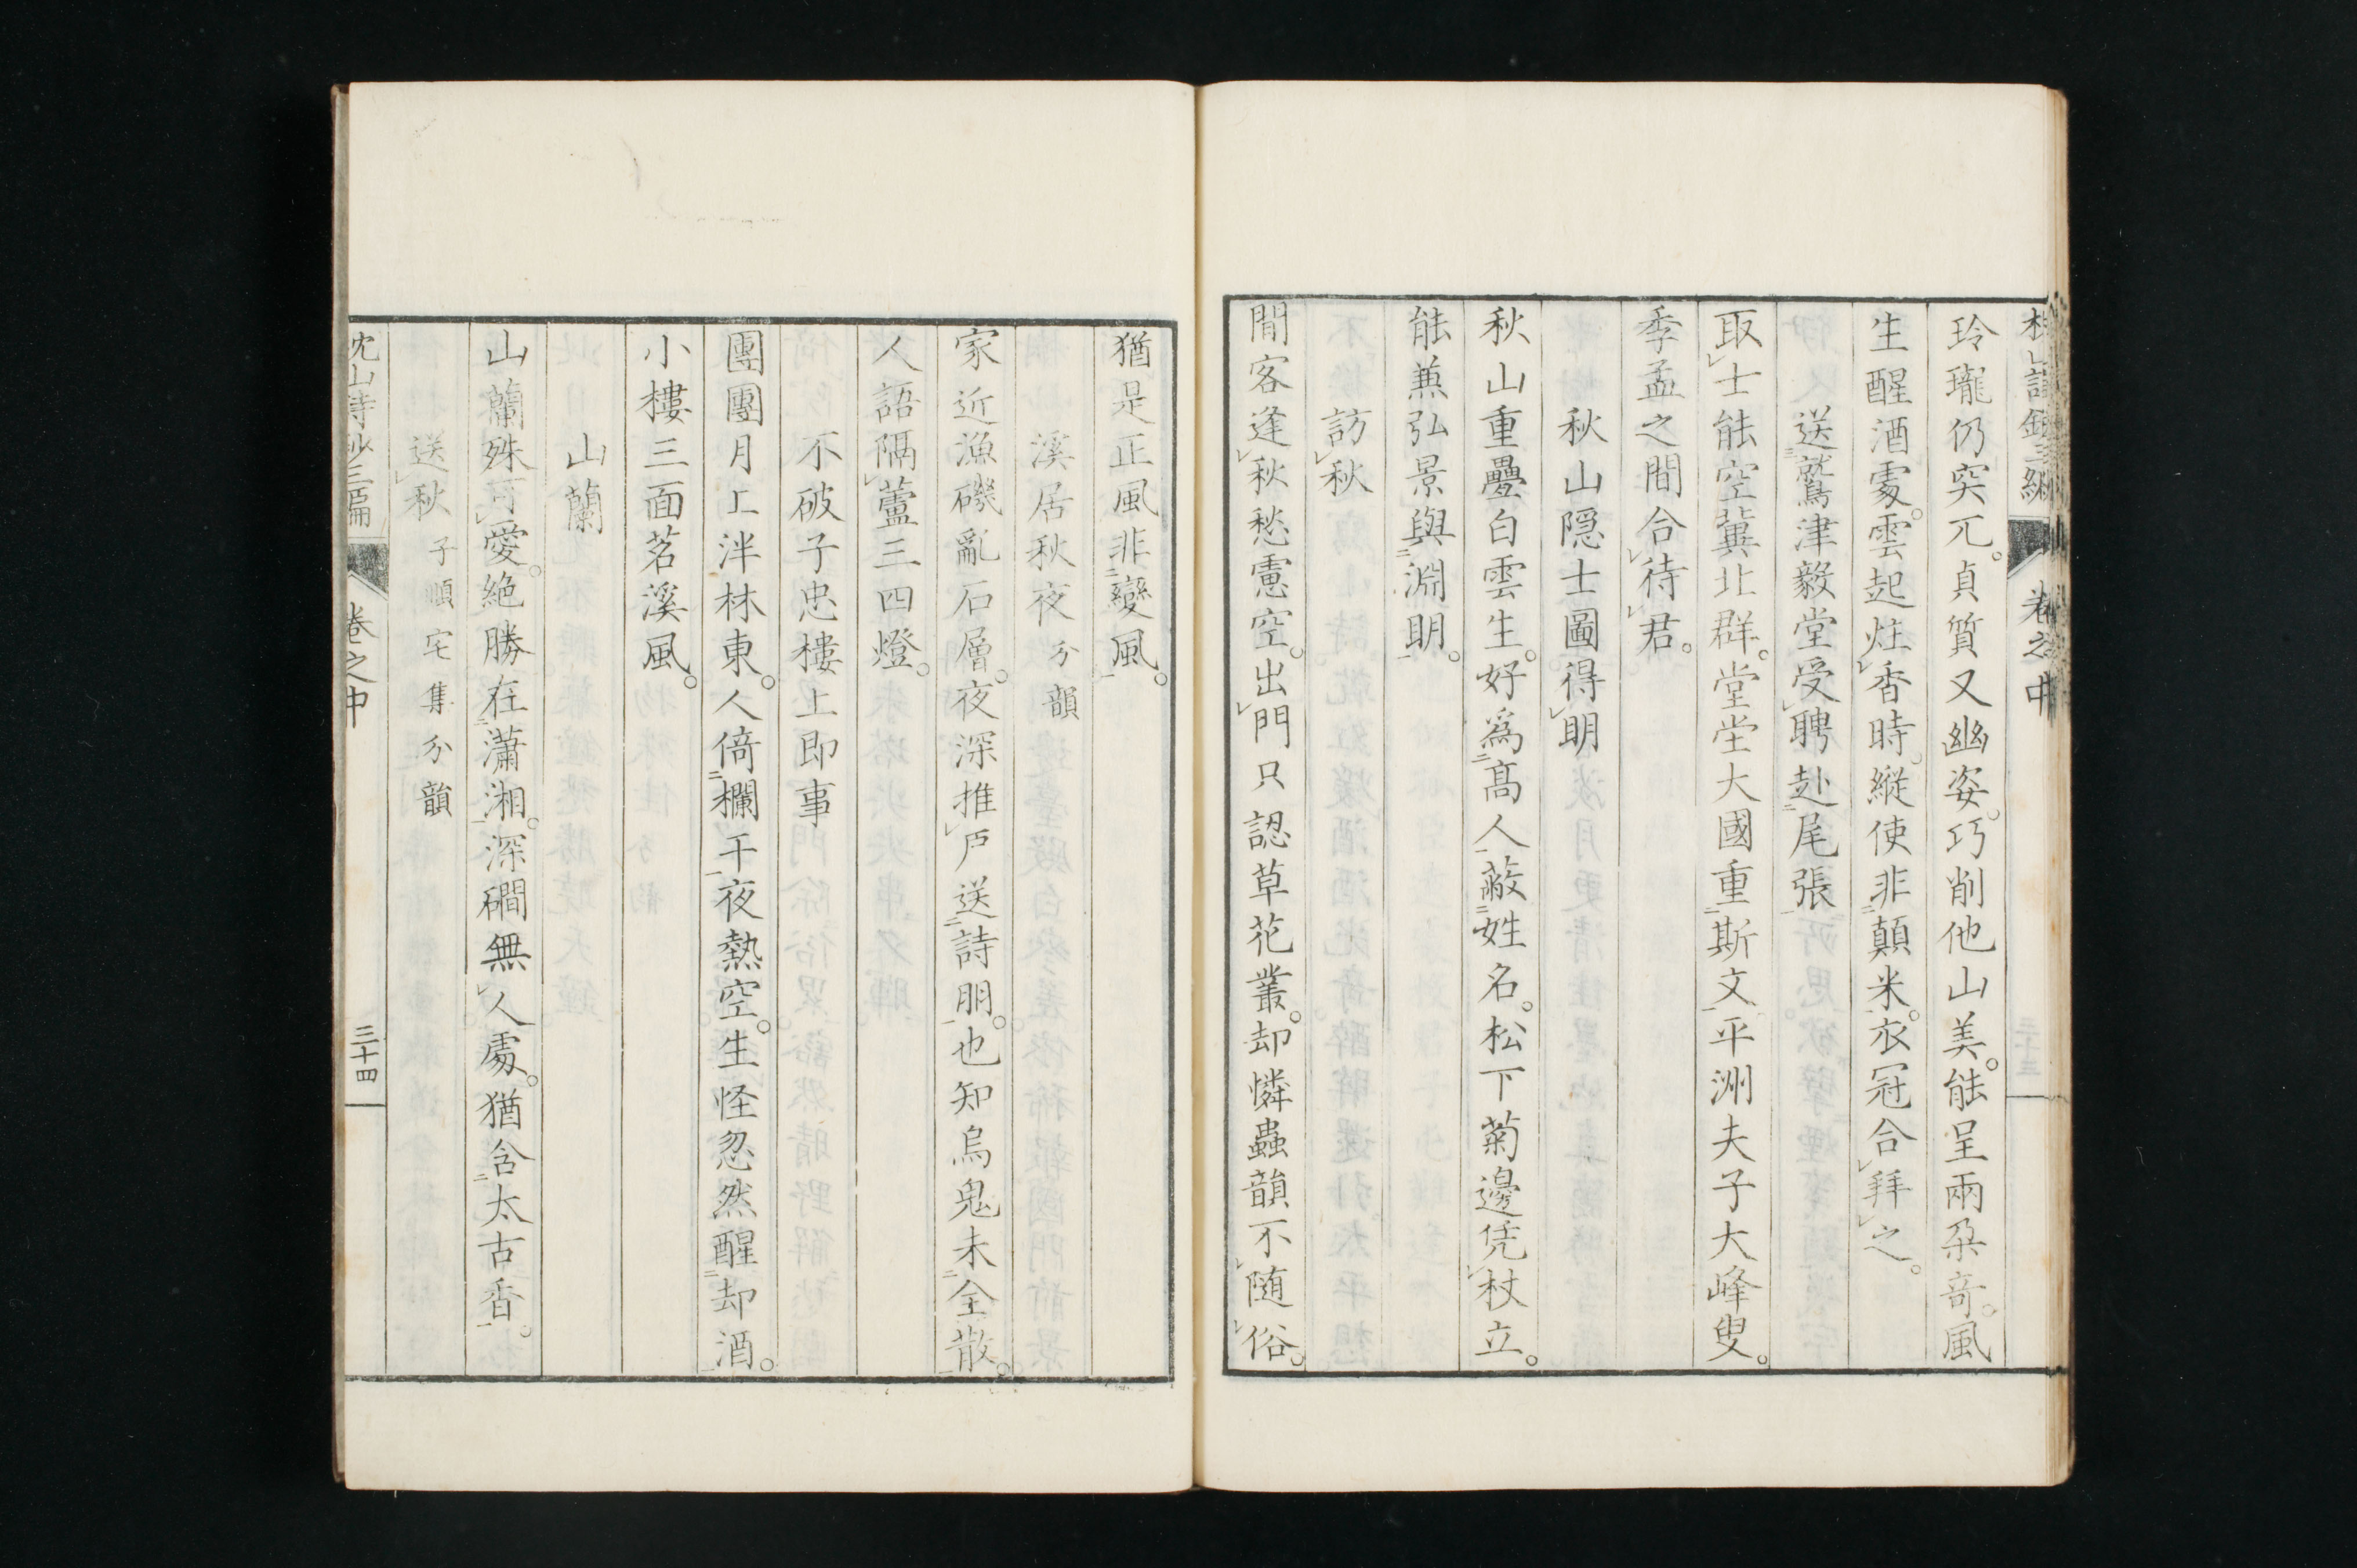 卷之中
玲瓏仍突兀。貞質又幽姿。巧削他山美。能呈兩朶奇。風
生醒酒處。雲起炷香時。縱使非顛米。衣冠合拜之。
送鷲津毅堂受聘赴尾張
取士能空冀北群。堂堂大國重斯文。平洲夫子大峰叟。
季孟之間合待君。
秋山隠士圖得明
秋山重疊白雲生。好爲高人蔽姓名。松下菊邊凭杖立。
能兼弘景與淵明。
訪秋
閒客逢秋愁慮空。出門只認草花叢。却憐蟲韻不随俗。
猶是正風非變風。
溪居秋夜分韻
家近漁磯亂石層。夜深推戸送詩朋。也知烏鬼未全散。
人語隔蘆三四燈。
不破子忠樓上即事
團團月上泮林東。人倚欄干夜熱空。生怪忽然醒却酒。
小樓三面茗溪風。
山蘭
山蘭殊可愛。絶勝在瀟湘。深磵無人處。猶含太古香。
送秋子順宅集分韻
枕山詩鈔三編
卷之中
三十四